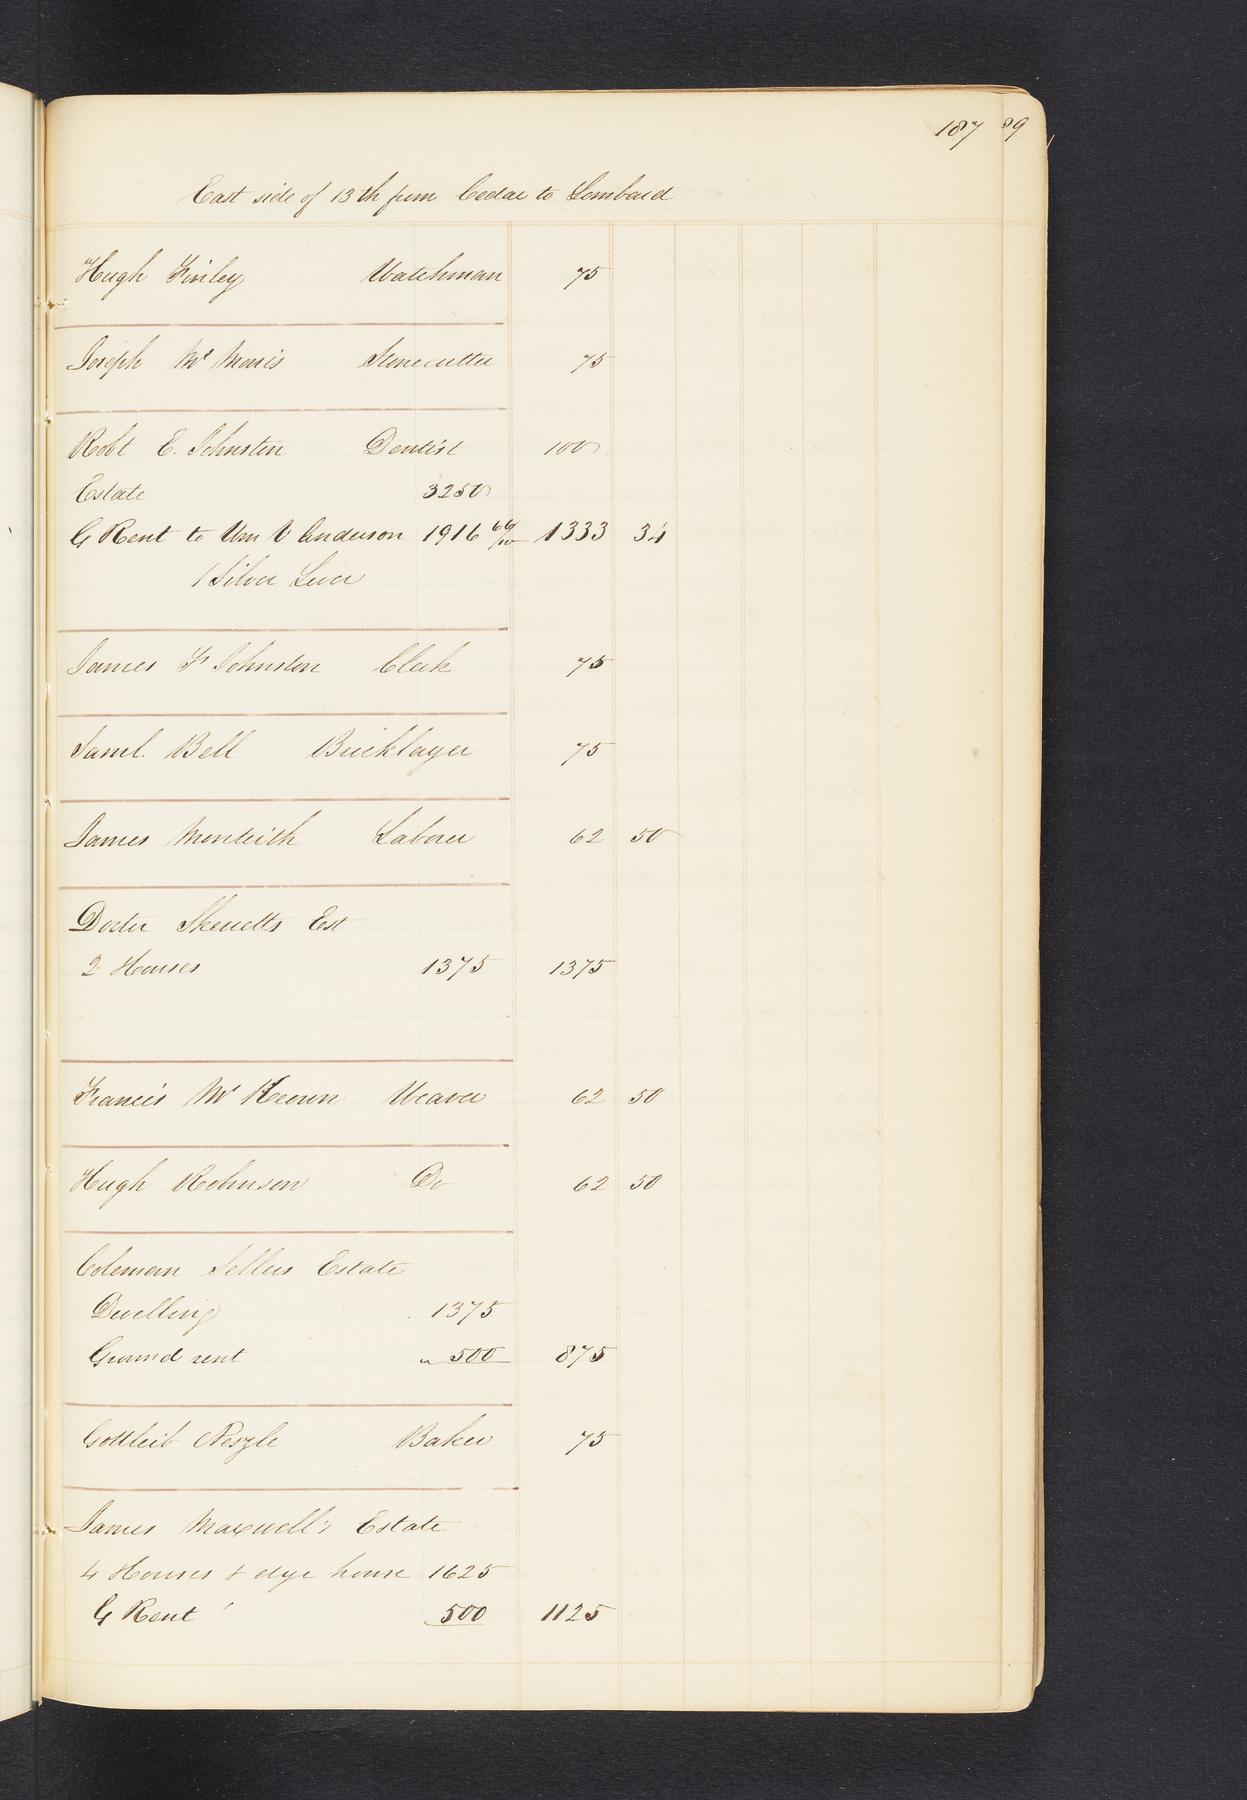 187 89
East side of 13th from Cedar to Lombard
Hugh Finley Watchman 75
Joseph Mc Monis Stonecutter 75
Robt E. Johnston Dentist 100
Estate 3250
G Rent to Wm V Anderson 1916 66/100 1333 34
1 Silver Lever
James F Johnston Clerk 75
Saml. Bell Bricklayer 75
James Monteith Laborer 62 50
Doctor Skerretts Est
2 Houses 1375 1375
Francis Mc Keown Weaver 62 50
Hugh Robinson Do 62 50
Coleman Sellers Estate
Dwelling 1375
Ground rent 500 875
Gottleib Baker 75
James Maxwell's Estate
4 Houses & dye house 1625
G Rent 500 1125